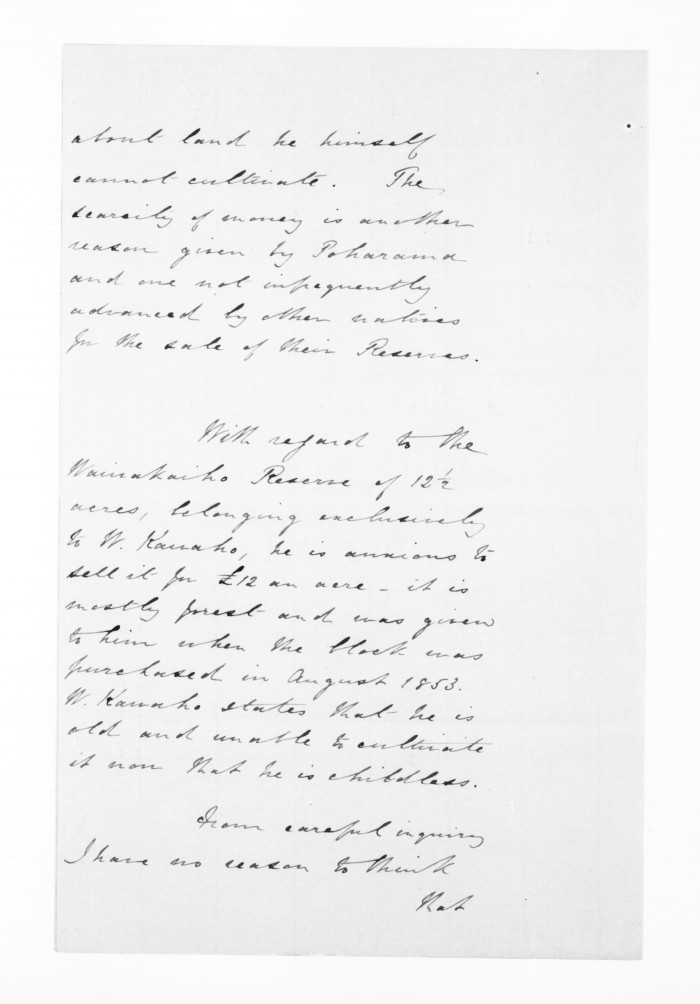 about land he himself
cannot cultivate. The
scarcity of money is another
reason given by Poharama
and one not infrequently
advanced by other natives
for the sale of their Reserves.
With regard to the
Waiwakaiho Reserve of 12½
acres, belonging exclusively
to W. Kawaho, he is anxious to
sell it for £12 an acre - it is
mostly forest and was given
to him when the block was
purchased in August 1853.
W. Kawaho states that he is
old and unable to cultivate
it now that he is childless.
From careful inquiry
I have no reason to think
that